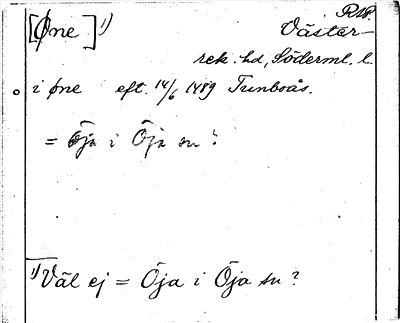 [Øne] 1)
Väster-
rek. hd, Söderml. l.
i øne eft. 14/6 1489 Tunboås.
= Öja i Öja sn?
1) Väl ej = Öja i Öja sn?